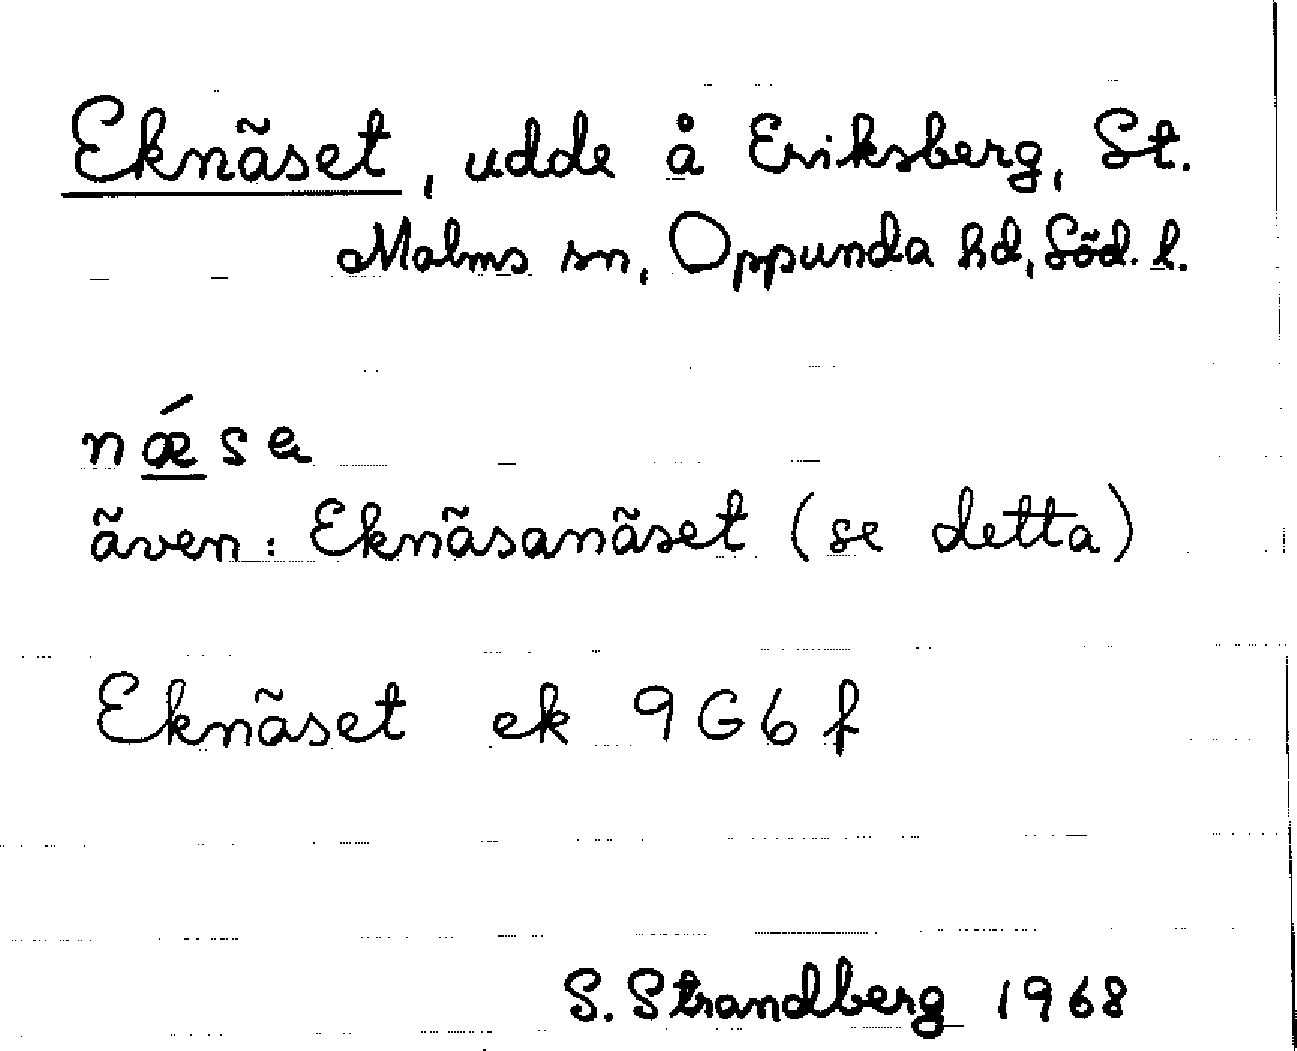 Eknäset, udde å Eriksberg, St.
Malms sn, Oppunda hd, Söd. l.
nǽsa
även: Eknäsanäset (se detta)
Eknäset ek 9G6f
S. Strandberg 1968